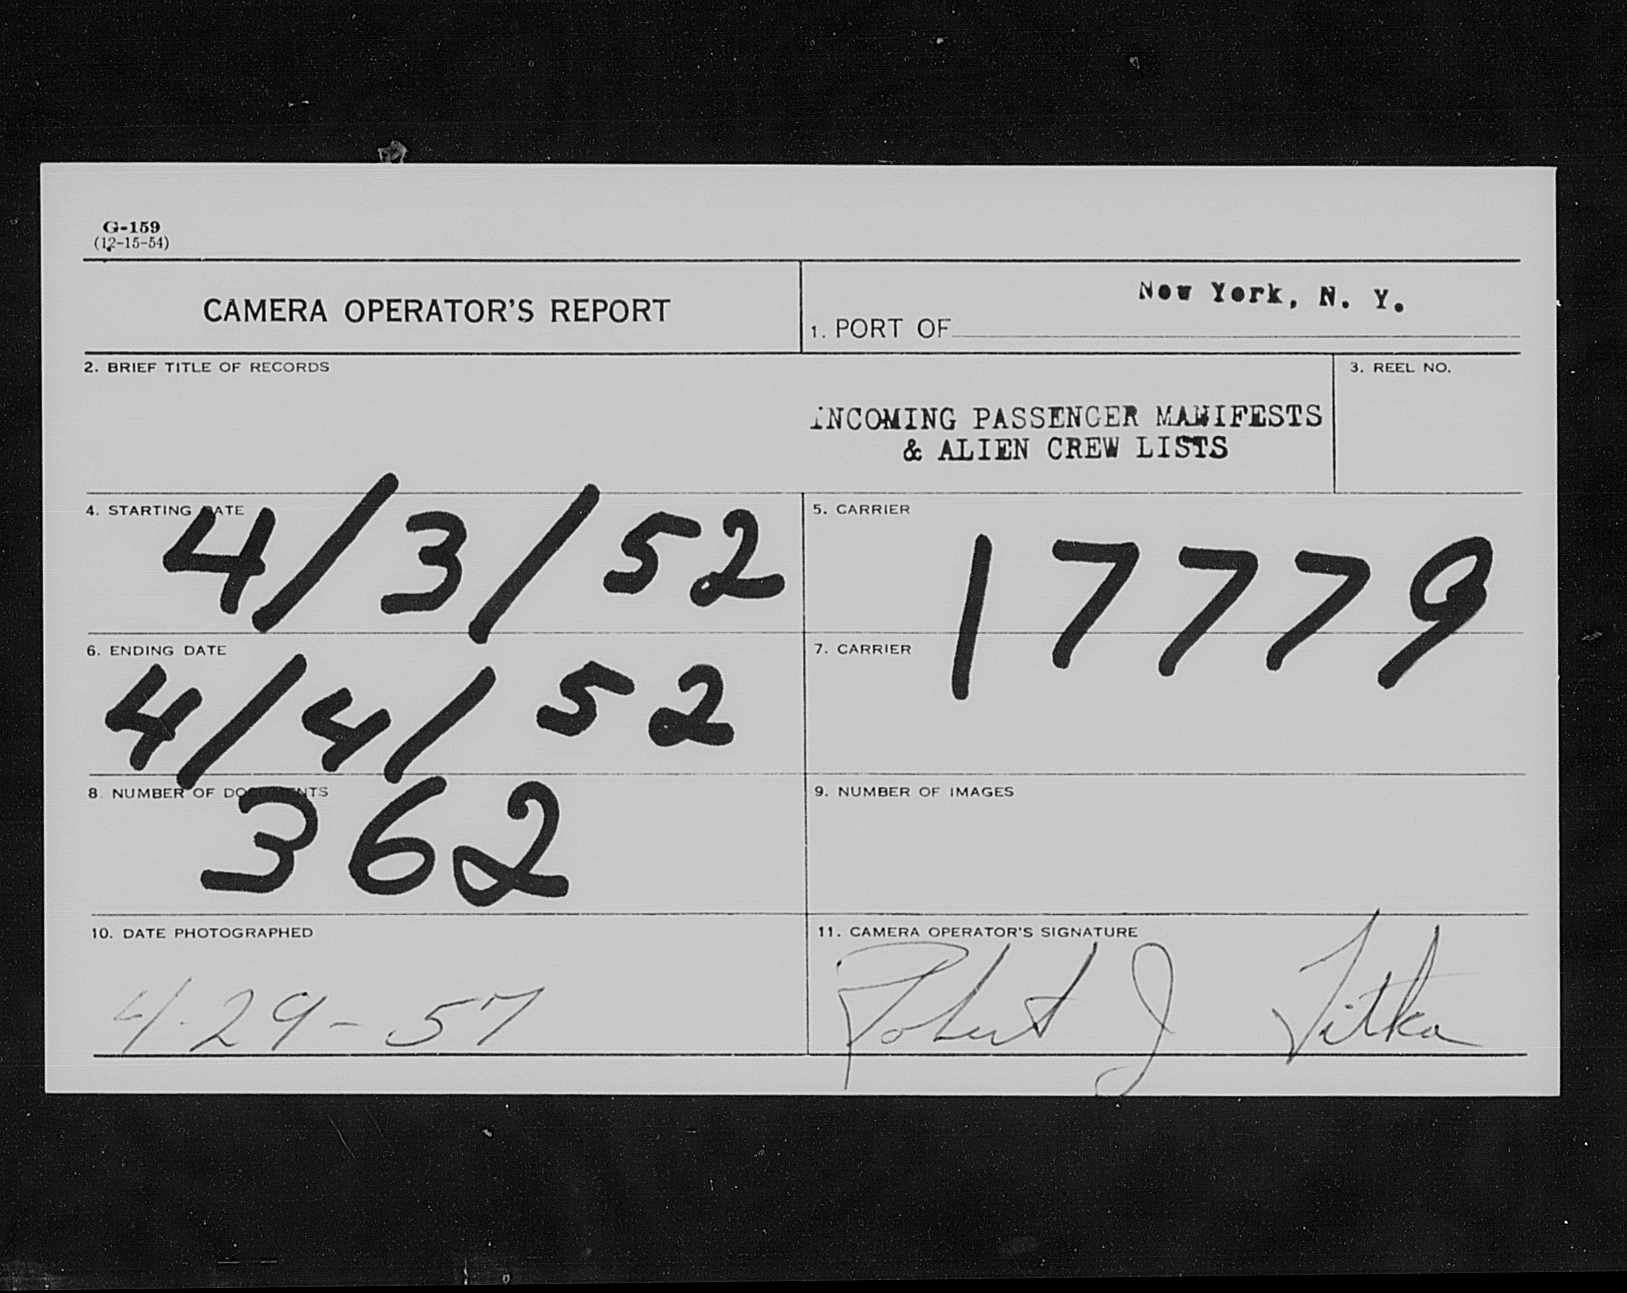 G-159
(12-15-54)
CAMERA OPERATOR'S REPORT
1. PORT OF New York, N. Y.
2. BRIEF TITLE OF RECORDS
INCOMING PASSENGER MANIFESTS
& ALIEN CREW LISTS
3. REEL NO.
4. STARTING DATE
4/3/52
5. CARRIER
17779
6. ENDING DATE
4/4/52
7. CARRIER
8. NUMBER OF DOCUMENTS
362
9. NUMBER OF IMAGES
10. DATE PHOTOGRAPHED
4-29-57
11. CAMERA OPERATOR'S SIGNATURE
Robert J